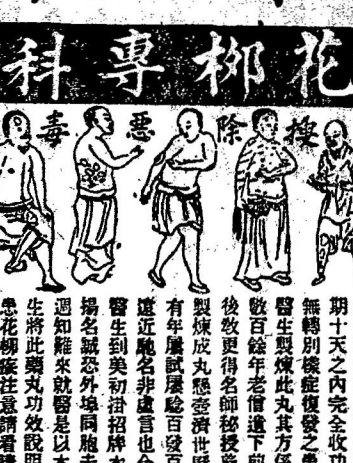 花柳專科
除惡毒
期十天之內完全收功
無轉別樣症復發之
醫生製煉此丸其方係
數百餘年老僧遺下
後敎更得名師秘授
製煉成丸懸壺濟世
有年屢試屢驗百發百
遠近馳名非虛言也
醫生到美初掛招牌
揚名誠恐外埠同胞
週知難來就醫是以
生將此藥丸功效說
患花柳接注意請看